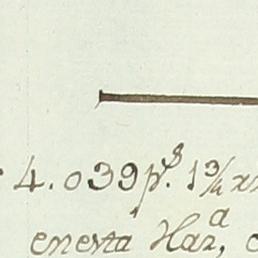 4.039 p.s 1¾
enesta Haz.a